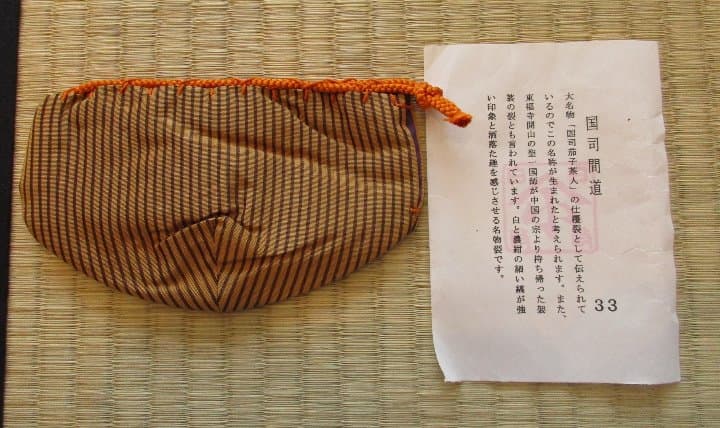 国司間道
大名物「国司茄子茶入」の仕覆裂として伝えられて
いるのでこの名称が生まれたと考えられます。また、
東福寺開山の聖一国師が中国の宗より持ち帰った袈
裟の裂とも言われています。白と濃紺の細い縞が強
い印象と洒落た趣を感じさせる名物裂です。
33